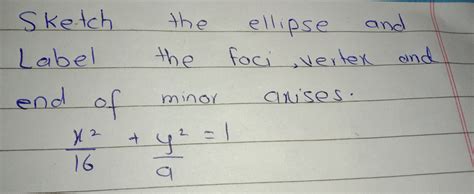 Sketch the ellipse and
Label the foci, vertex and
end of minor axises.
x²/16 + y²/9 = 1